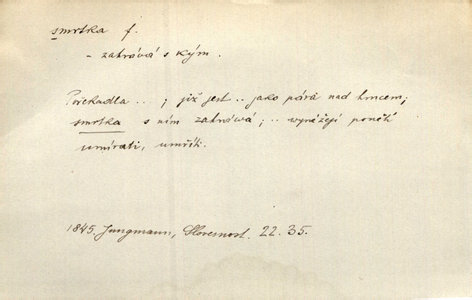 smrtka f.
– zahrává s kým.
Pořekadla ..; již jest .. jako pára nad hrncem;
smrtka s ním zahrává; .. vyrážejí ponětí
umírati, umříti.
1845. Jungmann, Slovesnost. 22. 35.